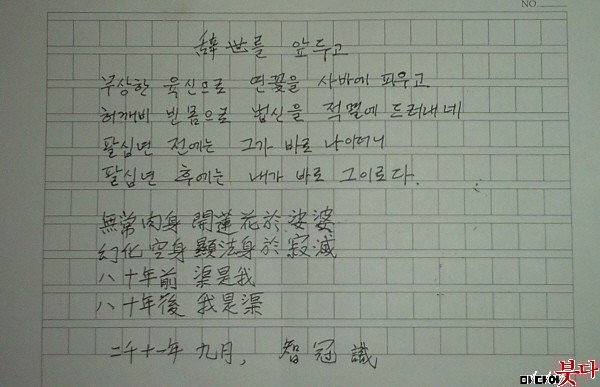 NO
辭世를 앞두고
무상한 육신으로 연꽃을 사바에 피우고
허깨비 빈 몸으로 법신을 적멸에 드러내네
팔십년 전에는 그가 바로 나이더니
팔십년 후에는 내가 바로 그이로다.
無常肉身 開蓮花於娑婆
幻化空身 顯法身於寂滅
八十年前 渠是我
八十年後 我是渠
二千十一年 九月, 智冠 識
미디어붓다